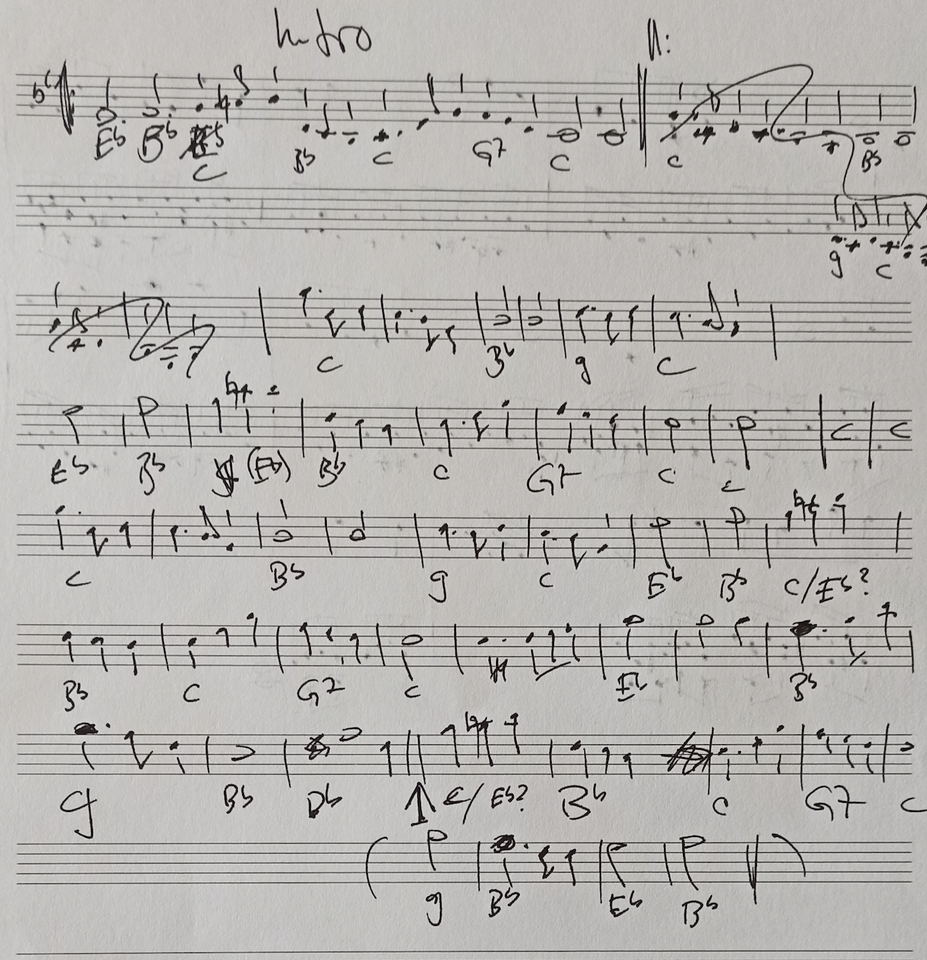 Intro
E♭ B♭ C B♭ C G7 C C B♭
g C
C B♭ g C
E♭ B♭ (E♭) B♭ C G7 C C C C
C B♭ g C E♭ B♭ C/E♭?
B♭ C G7 C E♭ B♭
g B♭ D♭ C/E♭? B♭ C G7 C
( g B♭ E♭ B♭ )